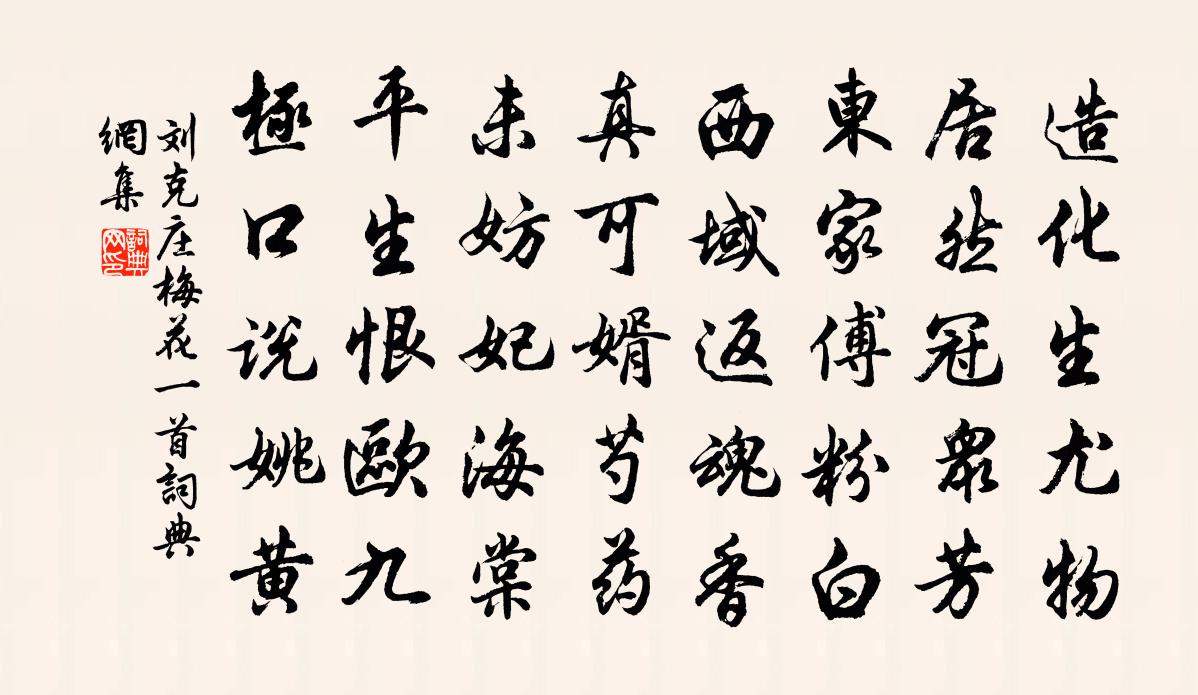 造化生尤物
居然冠衆芳
東家傅粉白
西域返魂香
真可婿芍药
未妨妃海棠
平生恨歐九
極口说姚黄
刘克庄梅花一首詞典
網集
詞典
网印